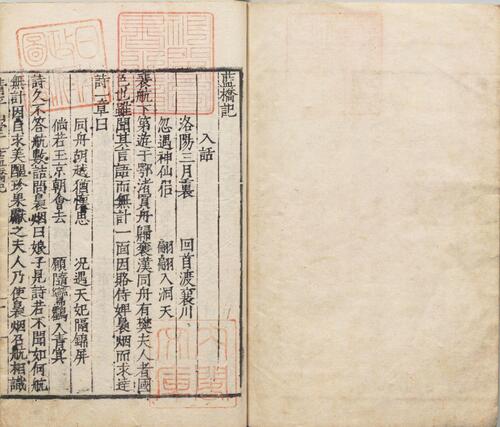 藍橋記
入話
洛陽三月裏 回首渡襄川
忽遇神仙侶 翩翩入洞天
裴航下第遊于鄂渚買舟歸襄漢同舟有樊夫人者國
色也雖聞其言語而無計一面因賂侍婢裊烟而求達
詩一章曰
同舟胡越猶懷思 況遇天妃隔錦屏
倘若玉京朝會去 願隨鸞鶴入青冥
詩久不答航數詰問裊烟曰娘子見詩若不聞如何航
無計因自求美醖珍果獻之夫人乃使裊烟召航相識